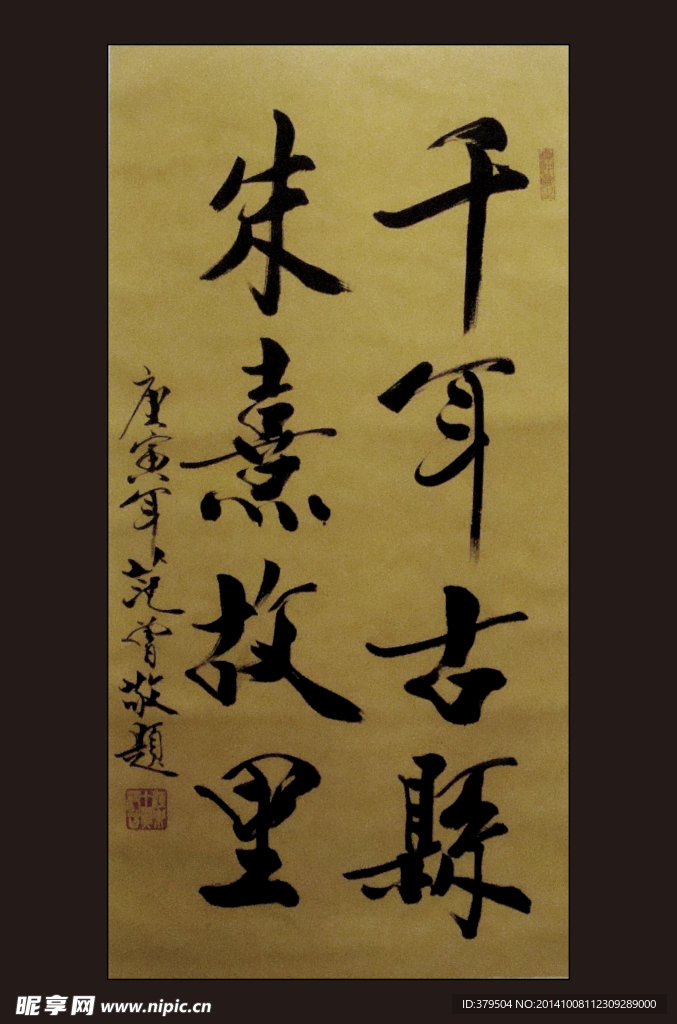 千年古縣
朱熹故里
庚寅年范曾敬題
昵享网 www.nipic.cn
ID:379504 NO:20141008112309289000